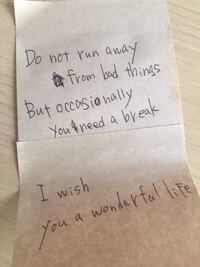 Do not run away
from bad things
But occasionally
you need a break
I wish
you a wonderful life